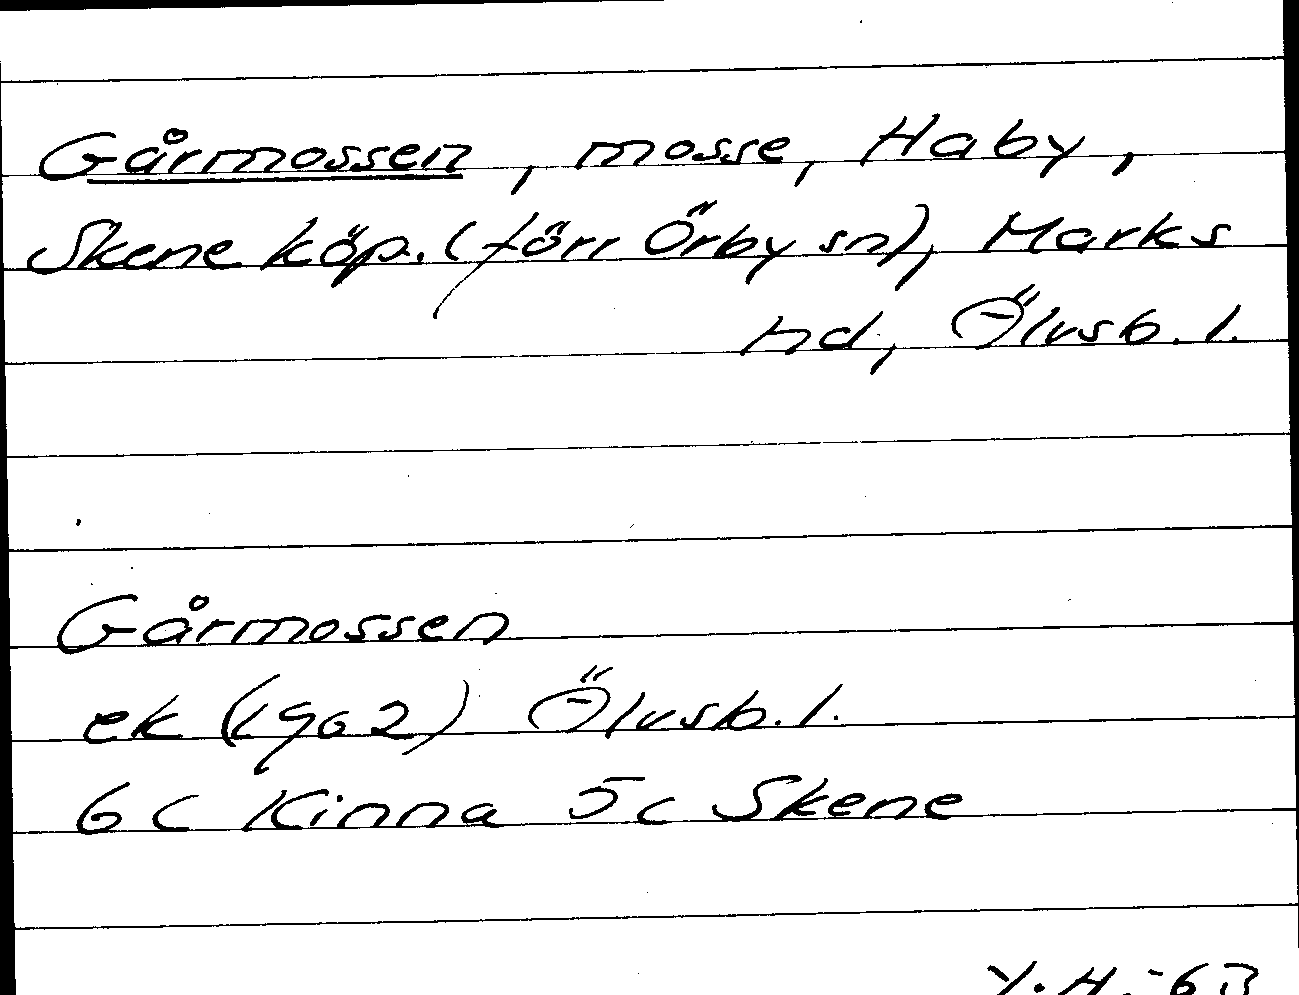 Gårmossen, mosse, Haby,
Skene köp. (förr Örby sn), Marks
hd, Älvsb. l.
Gårmossen
ek (1962) Älvsb. l.
6c Kinna 5c Skene
Y. H. -63